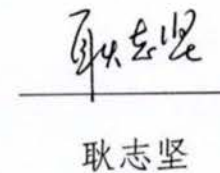 耿志坚
耿志坚